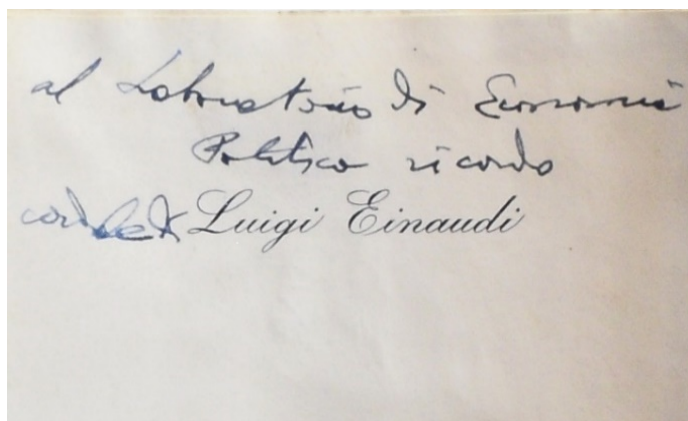 al Laboratorio di Economia
Politica ricordo
Luigi Einaudi